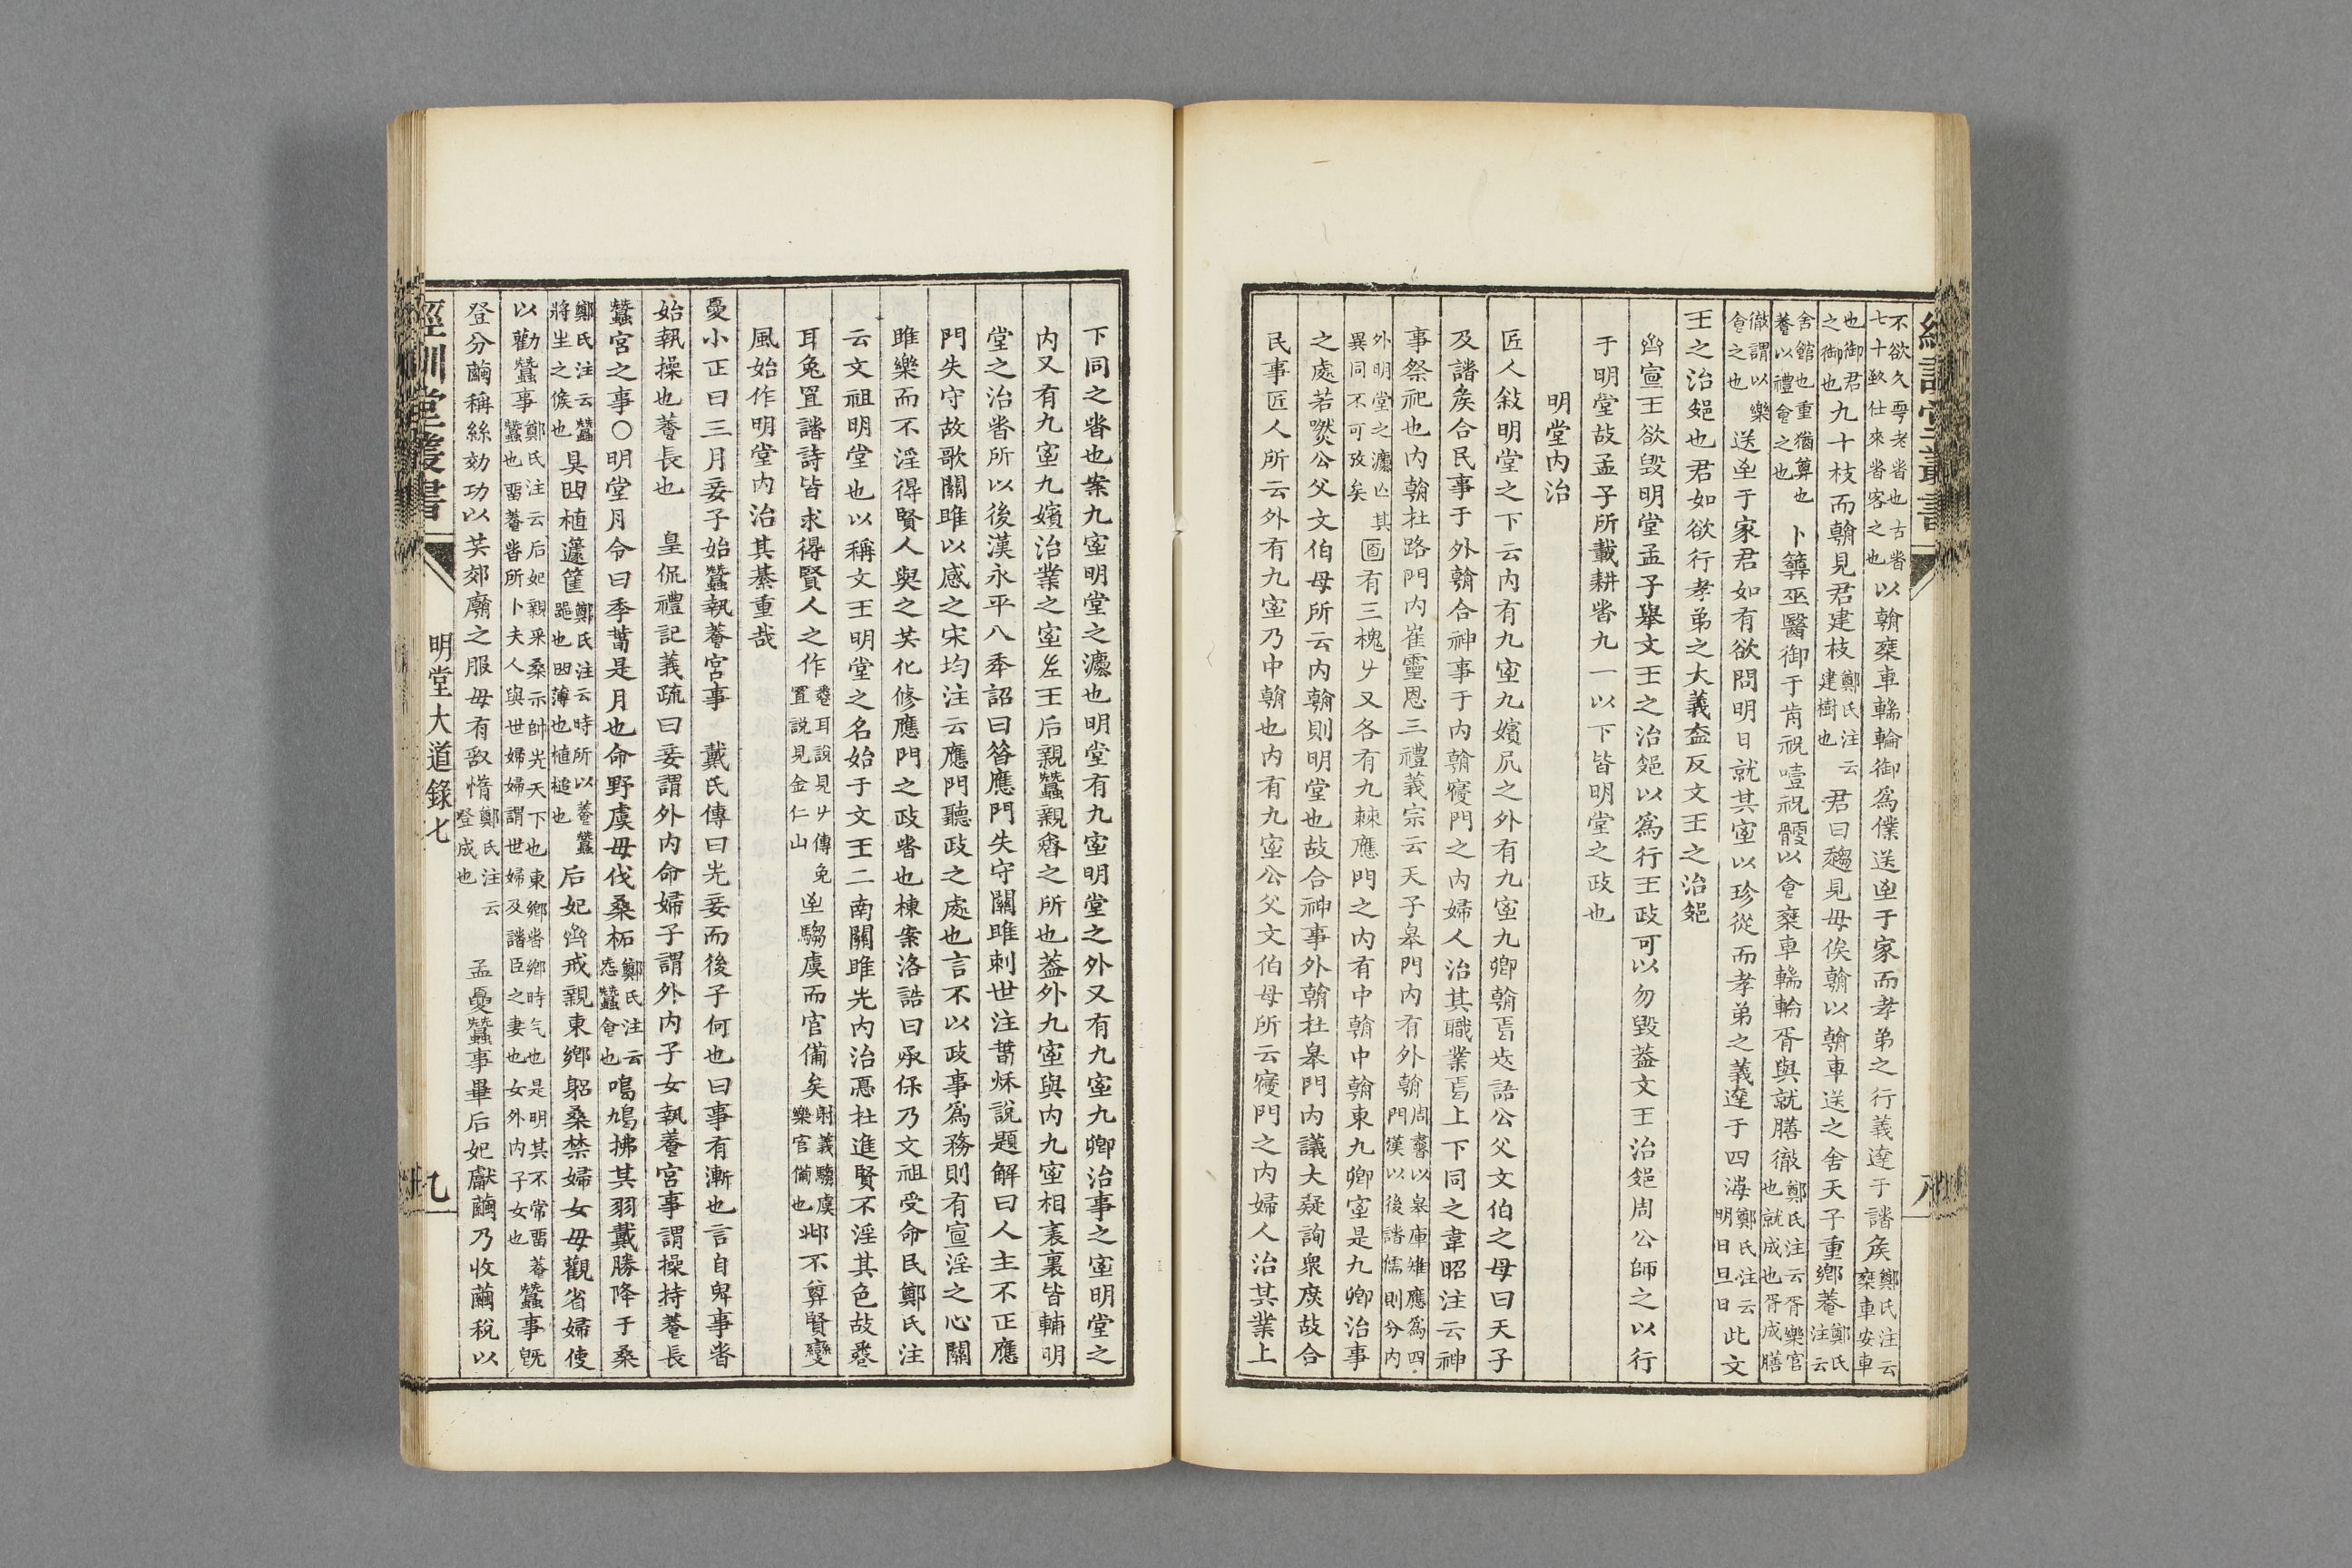 不欲久辱老者也古者
七十致仕來者客之也
以朝乘車輲輪御爲僕送至于家而孝弟之行義達于諸侯
鄭氏注云
乘車安車
也御君
之御也
九十杖而朝見君建杖
鄭氏注云
建樹也
君曰趨見毋俟朝以朝車送之舍天子重鄉養
鄭氏
注云
舍館也重猶尊也
養以禮食之也
卜簭巫醫御于歬祝噎祝鯁以食乘車輲輪胥與就膳徹
鄭氏注云胥樂官
也就成也胥成膳
徹謂以樂
食之也
送至于家君如有欲問明日就其室以珍從而孝弟之義達于四海
鄭氏注云
明日旦日
此文
王之治郊也君如欲行孝弟之大義盍反文王之治郊
齊宣王欲毀明堂孟子舉文王之治郊以爲行王政可以勿毀葢文王治郊周公師之以行
于明堂故孟子所載耕者九一以下皆明堂之政也
明堂內治
匠人敍明堂之下云内有九室九嬪凥之外有九室九卿朝焉於語公父文伯之母曰天子
及諸矦合民事于外朝合神事于内朝寢門之内婦人治其職業焉上下同之韋昭注云神
事祭祀也内朝在路門内崔靈恩三禮義宗云天子皋門内有外朝
周書以皋庫雉應爲四
門漢以後諸儒則分内
外明堂之灋亾其
異同不可攷矣
面有三槐𠂇又各有九棘應門之内有中朝中朝東九卿室是九卿治事
之處若燮公父文伯母所云内朝則明堂也故合神事外朝在皋門内議大疑詢衆庶故合
民事匠人所云外有九室乃中朝也内有九室公父文伯母所云寢門之内婦人治其業上
下同之者也案九室明堂之灋也明堂有九室明堂之外又有九室九卿治事之室明堂之
内又有九室九嬪治業之室先王后親蠶親舂之所也葢外九室與内九室相表裏皆輔明
堂之治者所以後漢永平八年詔曰昔應門失守關雎刺世注曹秌說題解曰人主不正應
門失守故歌關雎以感之宋均注云應門聽政之處也言不以政事爲務則有宣淫之心關
雎樂而不淫得賢人與之共化修應門之政者也棟案洛誥曰承保乃文祖受命民鄭氏注
云文祖明堂也以稱文王明堂之名始于文王二南關雎先内治悳在進賢不淫其色故卷
耳兔罝諸詩皆求得賢人之作
卷耳說見𠂇傳兔
罝説見金仁山
至騶虞而官備矣
射義騶虞
樂官備也
邶不尊賢變
風始作明堂内治其綦重哉
夏小正曰三月妾子始蠶執養宮事　戴氏傳曰先妾而後子何也曰事有漸也言自卑事者
始執操也養長也　皇侃禮記義疏曰妾謂外内命婦子謂外内子女執養宮事謂操持養長
蠶宮之事○明堂月令曰季萅是月也命野虞毋伐桑柘
鄭氏注云
恐蠶食也
鳴鳩拂其羽戴勝降于桑
鄭氏注云蠶
將生之候也
具曲植籧筐
鄭氏注云時所以養蠶
器也曲薄也植槌也
后妃齊戒親東鄉躬桑禁婦女毋觀省婦使
以勸蠶事
鄭氏注云后妃親采桑示帥先天下也東鄉者鄉時气也是明其不常畱養
蠶也畱養者所卜夫人與世婦婦謂世婦及諸臣之妻也女外内子女也
蠶事旣
登分繭稱絲効功以共郊廟之服毋有敢惰
鄭氏注云
登成也
孟夏蠶事畢后妃獻繭乃收繭稅以
經訓堂叢書
明堂大道錄七
九